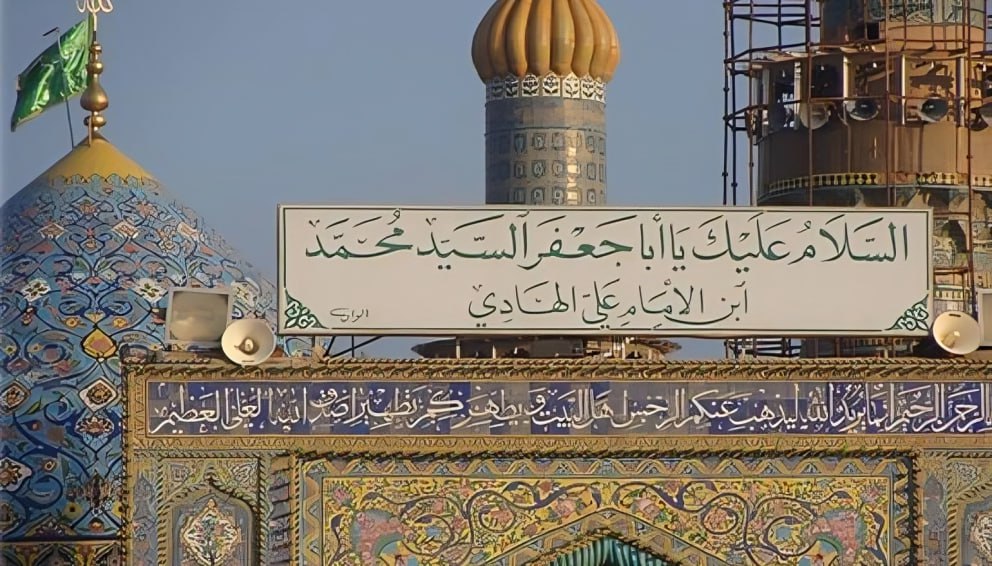 السَّلَامُ عَلَيْكَ يَا أَبَا جَعْفَرَ السَّيِّد مُحَمَّد
ابن الإمَامِ عَلِيّ الهَادِي
الرحمن الرحيم إنما يريد الله ليذهب عنكم الرجس أهل البيت ويطهركم تطهيرا صدق الله العلي العظيم